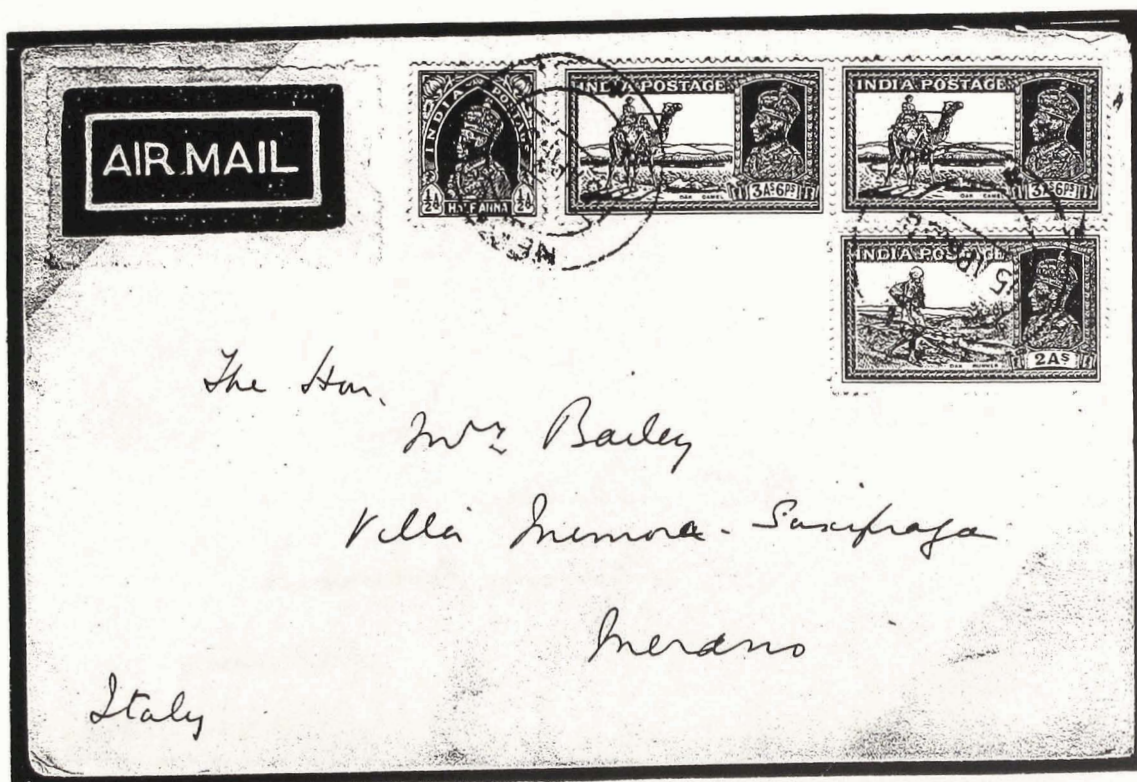 AIR MAIL
INDIA POSTAGE
½A HALF ANNA ½A
INDIA POSTAGE
DAK CAMEL
3As6Ps
INDIA POSTAGE
DAK CAMEL
3As6Ps
INDIA POSTAGE
DAK RUNNER
2As
The Hon.
Mrs Bailey
Villa Memora - Saxifraga
Merano
Italy